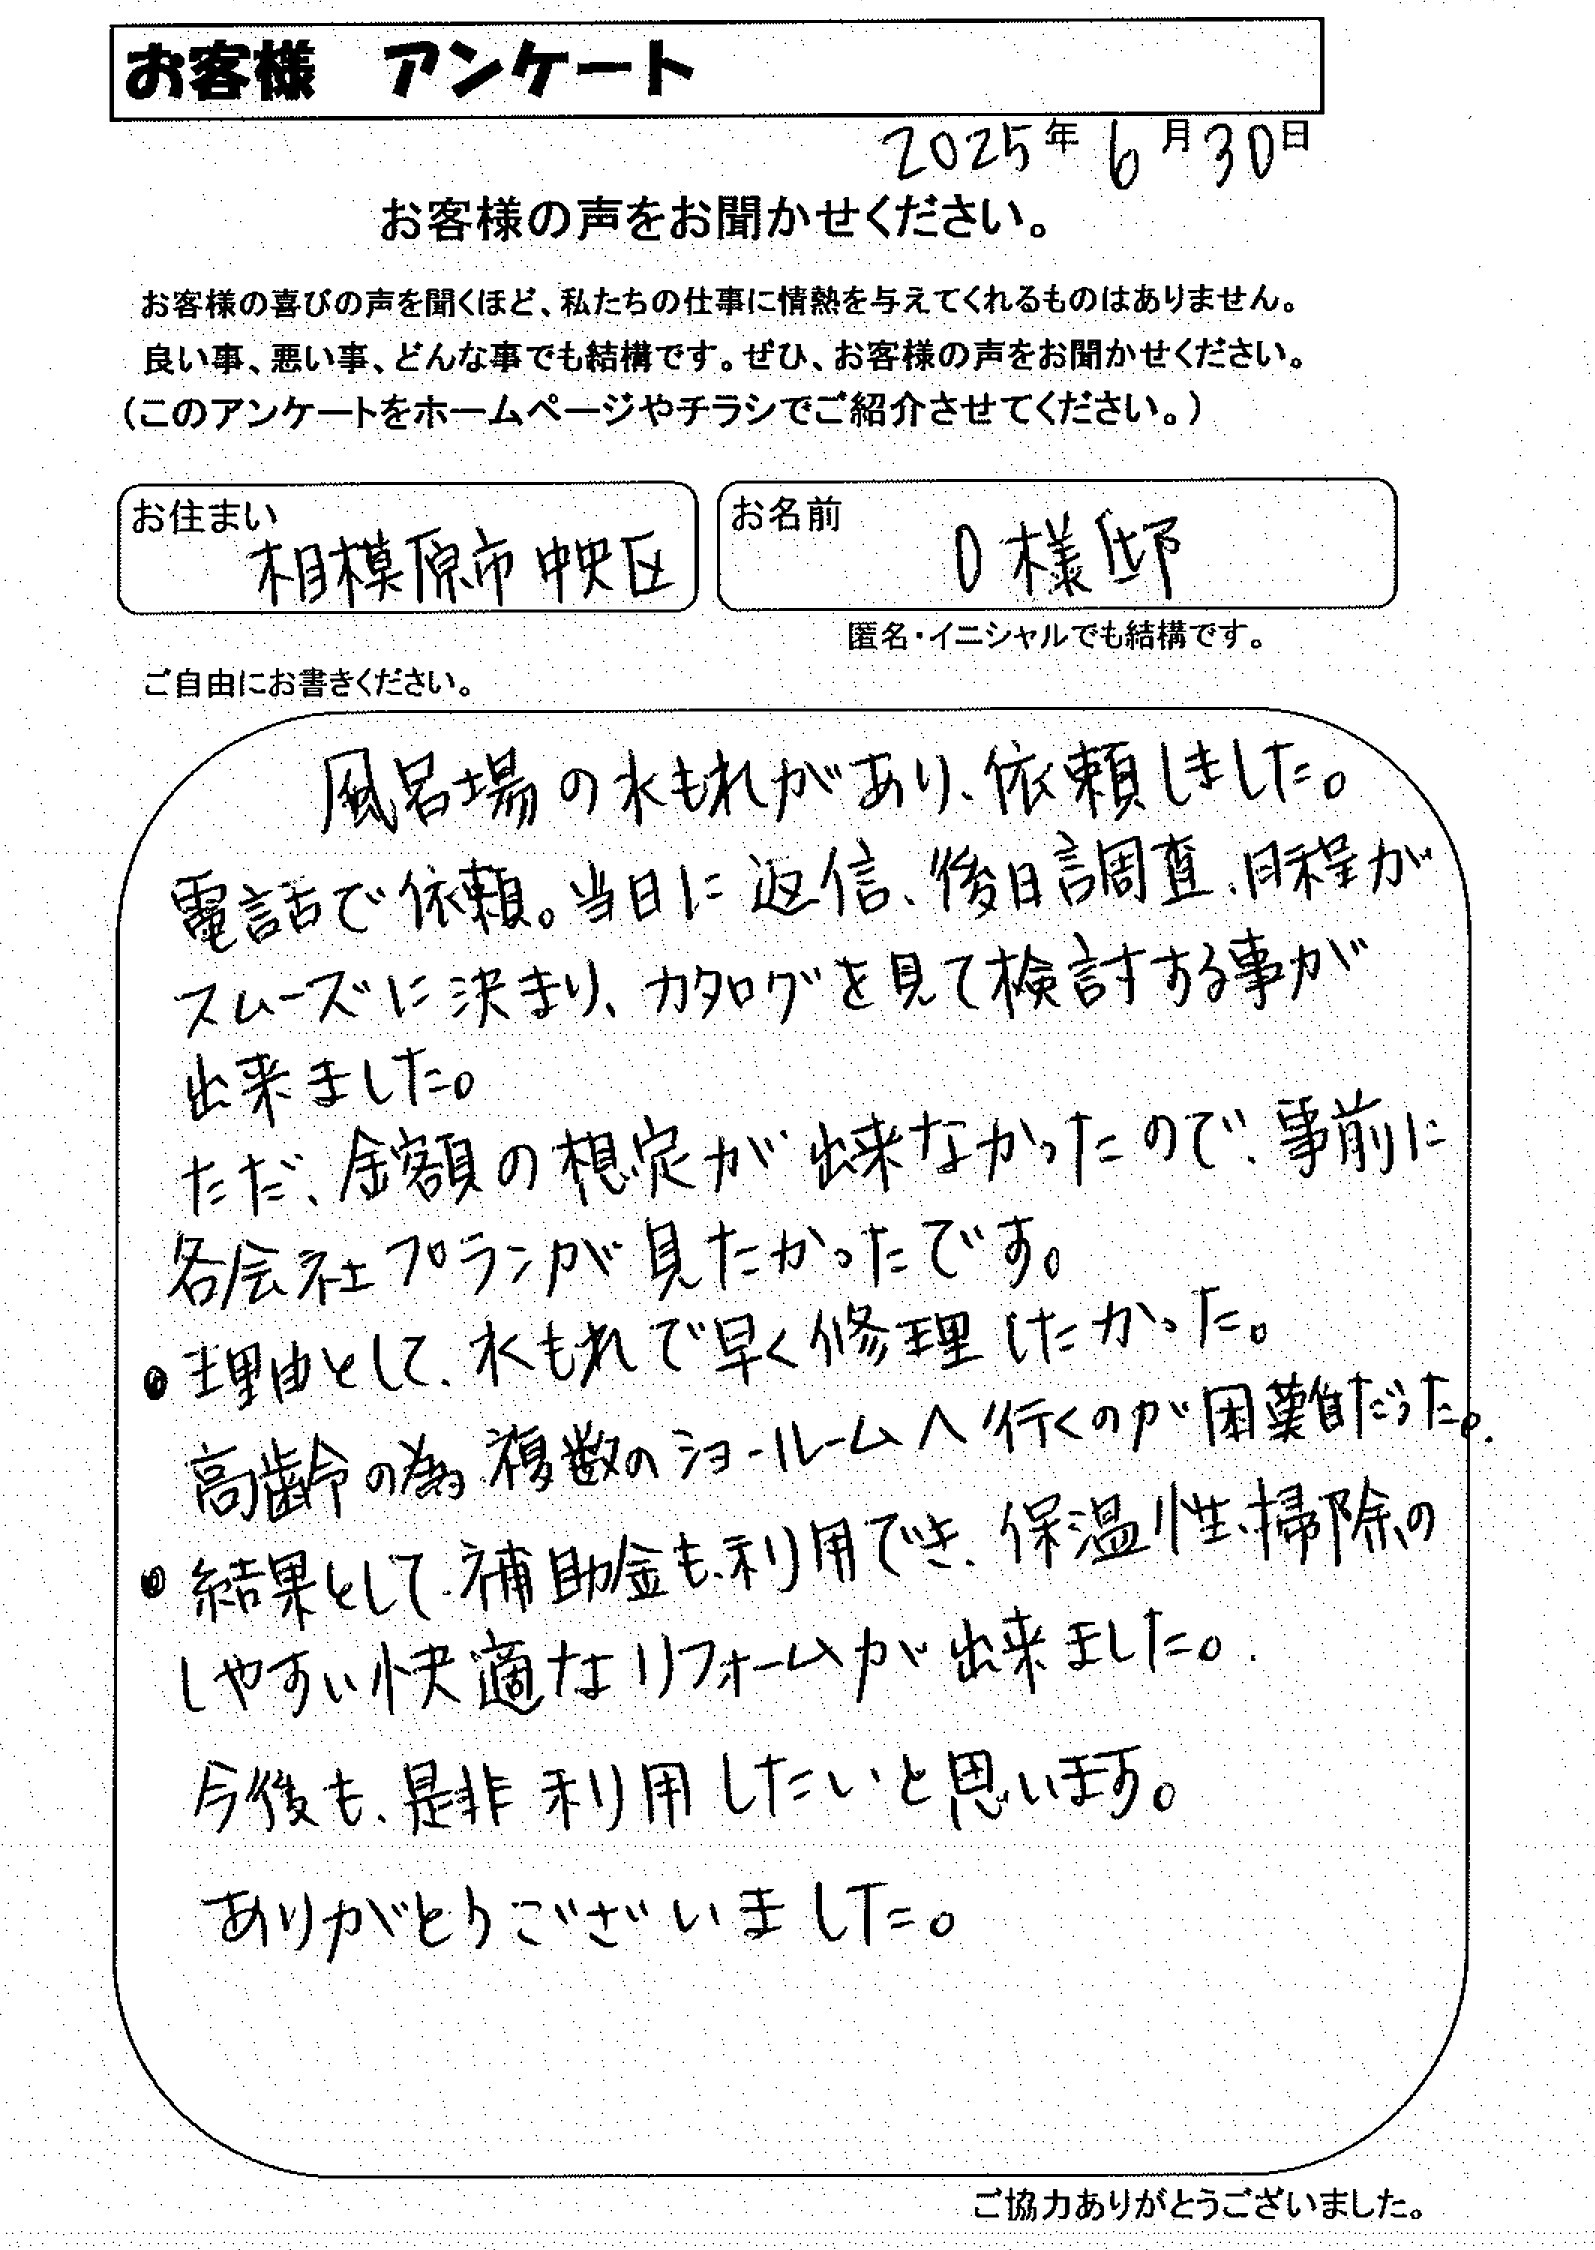 お客様 アンケート
2025年6月30日
お客様の声をお聞かせください。
お客様の喜びの声を聞くほど、私たちの仕事に情熱を与えてくれるものはありません。
良い事、悪い事、どんな事でも結構です。ぜひ、お客様の声をお聞かせください。
（このアンケートをホームページやチラシでご紹介させてください。）
お住まい 相模原市中央区
お名前 O様邸
匿名・イニシャルでも結構です。
ご自由にお書きください。
風呂場の水もれがあり、依頼しました。
電話で依頼。当日に返信、後日調査、日程が
スムーズに決まり、カタログを見て検討する事が
出来ました。
ただ、金額の想定が出来なかったので、事前に
各会社プランが見たかったです。
●理由として、水もれで早く修理したかった。
高齢の為、複数のショールームへ行くのが困難だった。
●結果として、補助金も、利用でき、保温性、掃除の
しやすい快適なリフォームが出来ました。
今後も、是非利用したいと思います。
ありがとうございました。
ご協力ありがとうございました。